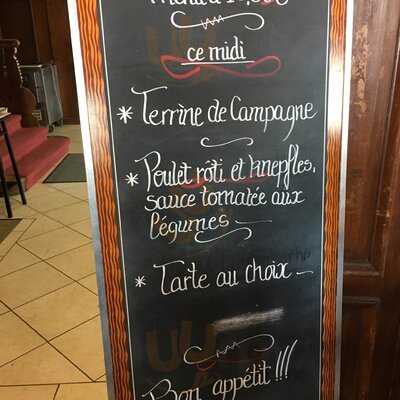 ce midi
* Terrine de Campagne
* Poulet rôti et knepfles,
sauce tomatée aux
légumes
* Tarte au choix
Bon appétit !!!